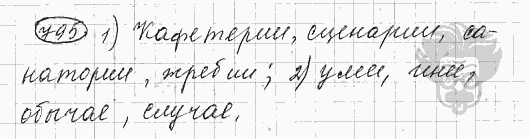 795 1) Кафетерии, сценарии, са-
натории, жребии; 2) улеи, инее,
обычае, случае.